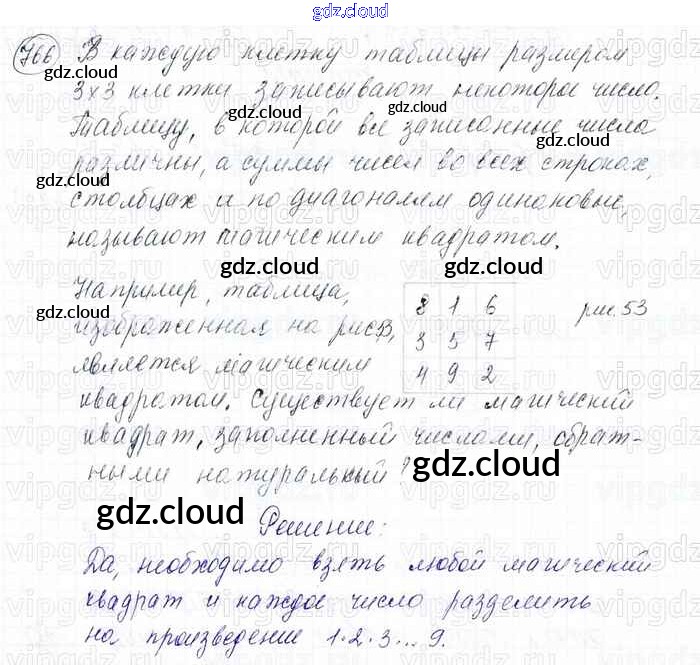 gdz.cloud
766 В каждую клетку таблицы размером
gdz.cloud
3х3 клетки записывают некоторое число.
gdz.cloud
Таблицу, в которой все записанные числа
различны, а суммы чисел во всех строках,
gdz.cloud
столбцах и по диагоналям одинаковые,
называют магическим квадратом.
gdz.cloud gdz.cloud
Например, таблица, 8 1 6 рис. 53
gdz.cloud
изображенная на рис 53, 3 5 7
является магическим 4 9 2
квадратом. Существует ли магический
квадрат, заполненный числами, обрат-
ными натуральным ?
gdz.cloud
gdz.cloud
Решение:
Да, необходимо взять любой магический
квадрат и каждое число разделить
на произведение 1·2·3...9.